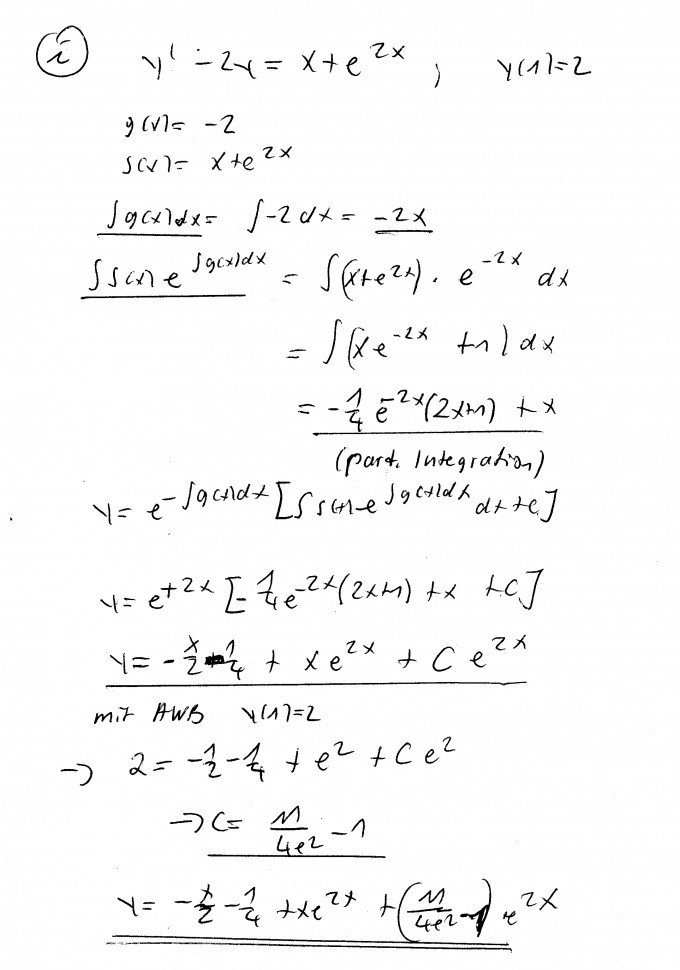 i y' - 2y = x + e^{2x} ; y(1)=2
g(x)= -2
s(x)= x+e^{2x}
∫g(x)dx = ∫-2 dx = -2x
∫s(x) e^{∫g(x)dx} = ∫(x+e^{2x}) · e^{-2x} dx
= ∫(xe^{-2x} +1) dx
= -1/4 e^{-2x}(2x+1) + x
(part. Integration)
y= e^{-∫g(x)dx} [∫s(x)·e^{∫g(x)dx} dx +c]
y= e^{+2x} [-1/4 e^{-2x}(2x+1) + x + c]
y= -x/2 - 1/4 + xe^{2x} + C e^{2x}
mit AWB y(1)=2
→ 2= -1/2 - 1/4 + e^2 + C e^2
→ C= 11/4e^2 - 1
y= -x/2 - 1/4 + xe^{2x} + (11/4e^2 - 1) e^{2x}